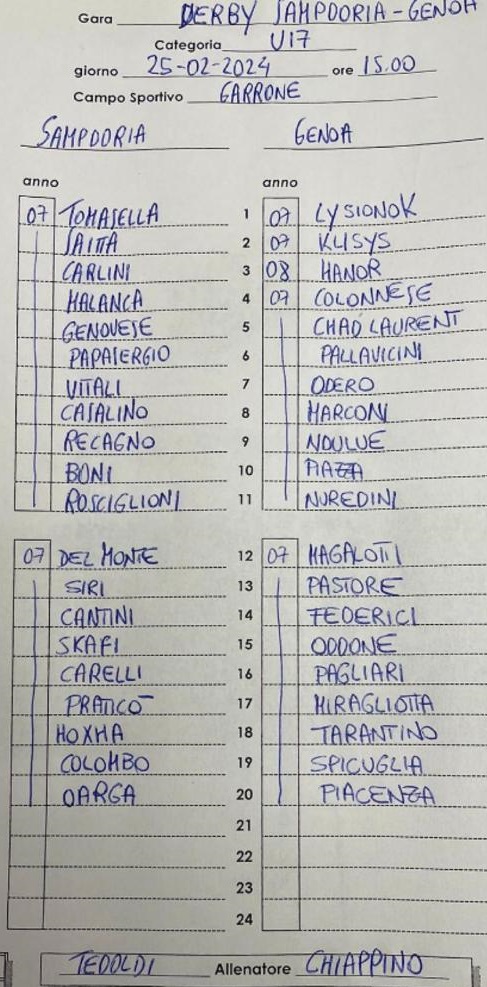 Gara DERBY SAMPDORIA - GENOA
Categoria U17
giorno 25-02-2024 ore 15.00
Campo Sportivo GARRONE
SAMPDORIA GENOA
anno anno
07 TOMASELLA 1 07 LYSIONOK
SAITTA 2 07 KLISYS
CARLINI 3 08 HANOR
MALANCA 4 07 COLONNESE
GENOVESE 5 CHAD LAURENT
PAPASERGIO 6 PALLAVICINI
VITALI 7 ODERO
CASALINO 8 MARCONI
RECAGNO 9 NDULUE
BONI 10 PIAZZA
ROSCIGLIONI 11 NUREDINI
07 DEL MONTE 12 07 MAGALOTTI
SIRI 13 PASTORE
CANTINI 14 FEDERICI
SKAFI 15 ODDONE
CARELLI 16 PAGLIARI
PRATICO 17 MIRAGLIOTTA
HOXHA 18 TARANTINO
COLOMBO 19 SPICUGLIA
OARGA 20 PIACENZA
21
22
23
24
TEDOLDI Allenatore CHIAPPINO